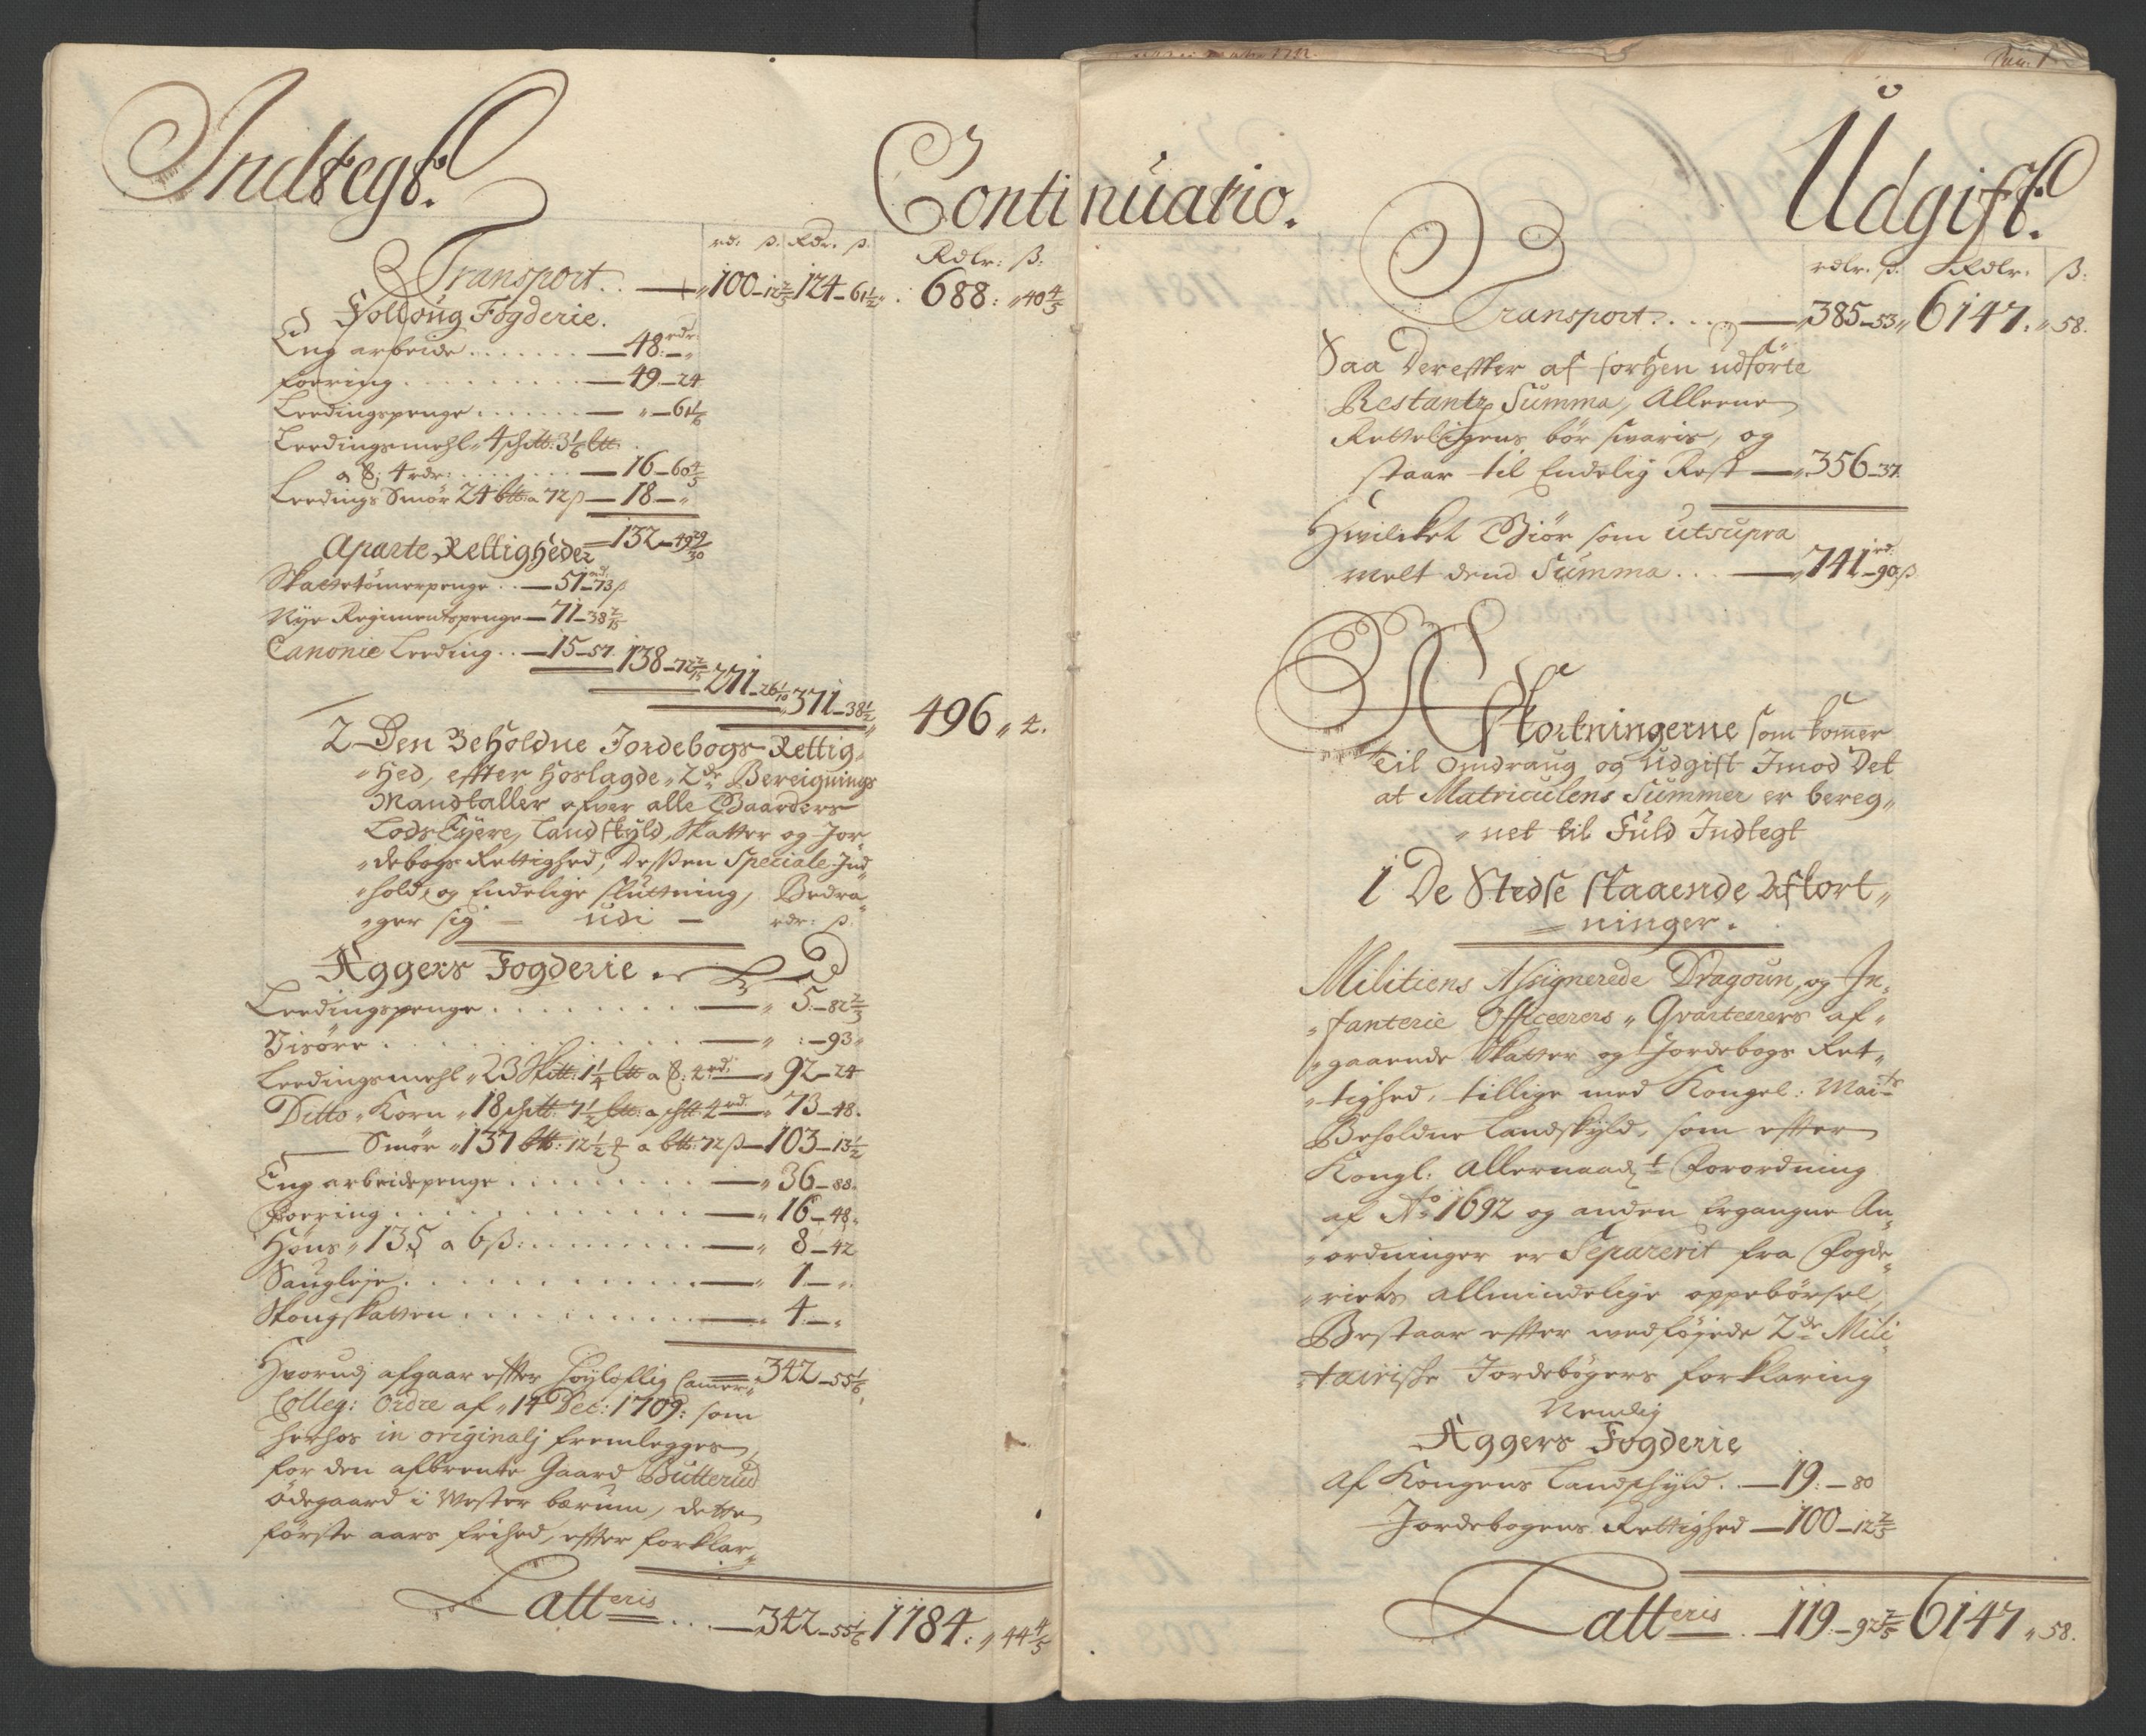 Indtegt.
Continuatio.
rd: ß. Rdr. ß.
Rdlr: ß:
Transport. . — 100–12 2/5 124–61 1/2 . 688: „ 40 4/5
Folloug Fogderie.
Eng arbeide . . . . . . . — 48 rdr –„
foering . . . . . . . . . — 49–24
Leedingspenge . . . . . . — „–61 1/6
Leedingsmehl „ 4 schtt: 3 1/6 btt
a ß: 4 rdr: . . . . . . — 16–60 4/5
Leedings Smør 24 btt: a 72 ß — 18–„
132–49 29/30
Aparte Rettigheder
Skattetømerpenge . . — 51 rd: –73 ß
Nye Regimentspenge — 71–38 2/15
Canonie Leeding . . — 15–57. 138–72 2/15
271–26 1/10
„ 371–38 1/2 „ 496 „ 4.
2 Den Beholdne Jordebogs Rettig„
„hed, effter hoslagde „ 2de Bereignings
Mandtaller ofver alle Gaarders
Lods Eyere, Landskyld, Skatter og Jor„
„debogs Rettighed, Dessen Speciale Ind„
„hold, og Endelige sluttning, Bedra„
„ger sig — udi — rdr: ß.
Aggers Fogderie .
Leedingspenge . . . . . . . . — „ 5:–82 2/3
Visøre . . . . . . . . . . . — „ :–93 „
Leedingsmehl „ 23 Sktt: 1 1/4 btt a ß: 4 rd: — „ 92–24
Ditto „ Korn „ 18 schtt: 7 1/2 btt: a schtt 4 rd. — „ 73–48.
— Smør „ 137 btt: 12 1/2 a btt: 72 ß — 103–13 1/2
Eng arbeidspenge . . . . . . . . — „ 36–88.
Foering . . . . . . . . . . . — „ 16–48 „
Høns „ 135 a 6 ß: . . . . . . . — „ 8–42
Saugleje . . . . . . . . . . . — „ 1–„.
Skougskatten . . . . . . . . . . — „ 4:–„
Hvorudj afgaar effter Høyloflig Camer„ 342–55 1/6
Colleg: Ordre af „ 14 Dec: 1709: som
herhos in originalj fremlegges,
for den afbrente Gaard Butterud
ødegaard i Wester bærum, dette
første aars frihed, effter forklar„
Latteris . . . — 342–55 1/6 1184: „ 44 4/5
Udgift.
rdlr. ß. Rdlr. ß:
Transport . . . . — „ 385–53 „ 6147. „ 58.
Saa Dereffter af forhen udførte
Restantz Summa, Alleene
Retteligens bør svaris, og
staar til Endelig Rest — „ 356–37.
Hvilcket Giør som utsupra
melt dend Summa . . . — „ 741 rd: –90 ß
Afkortningerne som komer
til omdraug og udgift Imod Det
at Matriculens Summer er bereg„
„net til Fuld Indtegt
1 De Stedse staaende Afkort„
„ninger.
Militiens Assignerede Dragoun, og In„
„fanterie Officeerers „ Qvarteerers af„
„gaaende Skatter og Jordebogs Ret„
„tighed, tillige med Kongel: Maits
Beholdne Landskyld, som effter
Kongl: Allernaadst Forordning
af Ao 1692 og anden Ergangne An„
„ordninger er Separerit fra Fogde„
„riets Allmindelige oppebørsel,
Bestaar effter medføjede 2de Mili„
„tairiske Jordebøgers forklaring
Nemlig
Aggers Fogderie
Af Kongens Landschyld . . — 19:–80
Jordebogens Rettighed — 100–12 2/5
Latteris . — 119:–92 2/5 6147 „ 58.